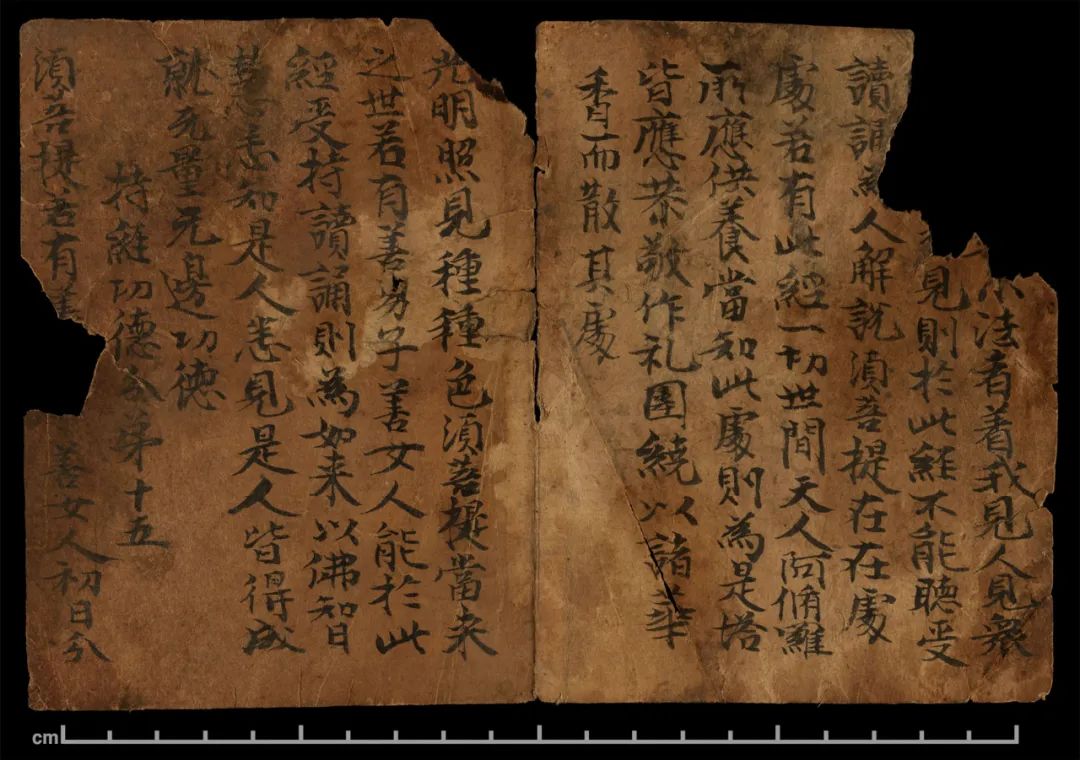 小法者着我見人見衆
見則於此經不能聽受
讀誦為人解說須菩提在在處
處若有此經一切世間天人阿脩羅
所應供養當知此處則為是塔
皆應恭敬作礼圍繞以諸華
香而散其處
光明照見種種色須菩提當来
之世若有善男子善女人能於此
經受持讀誦則為如来以佛智
慧悉知是人悉見是人皆得成
就无量无邊功德
持經功德分苐十五
須菩提若有善 善女人初日分
cm